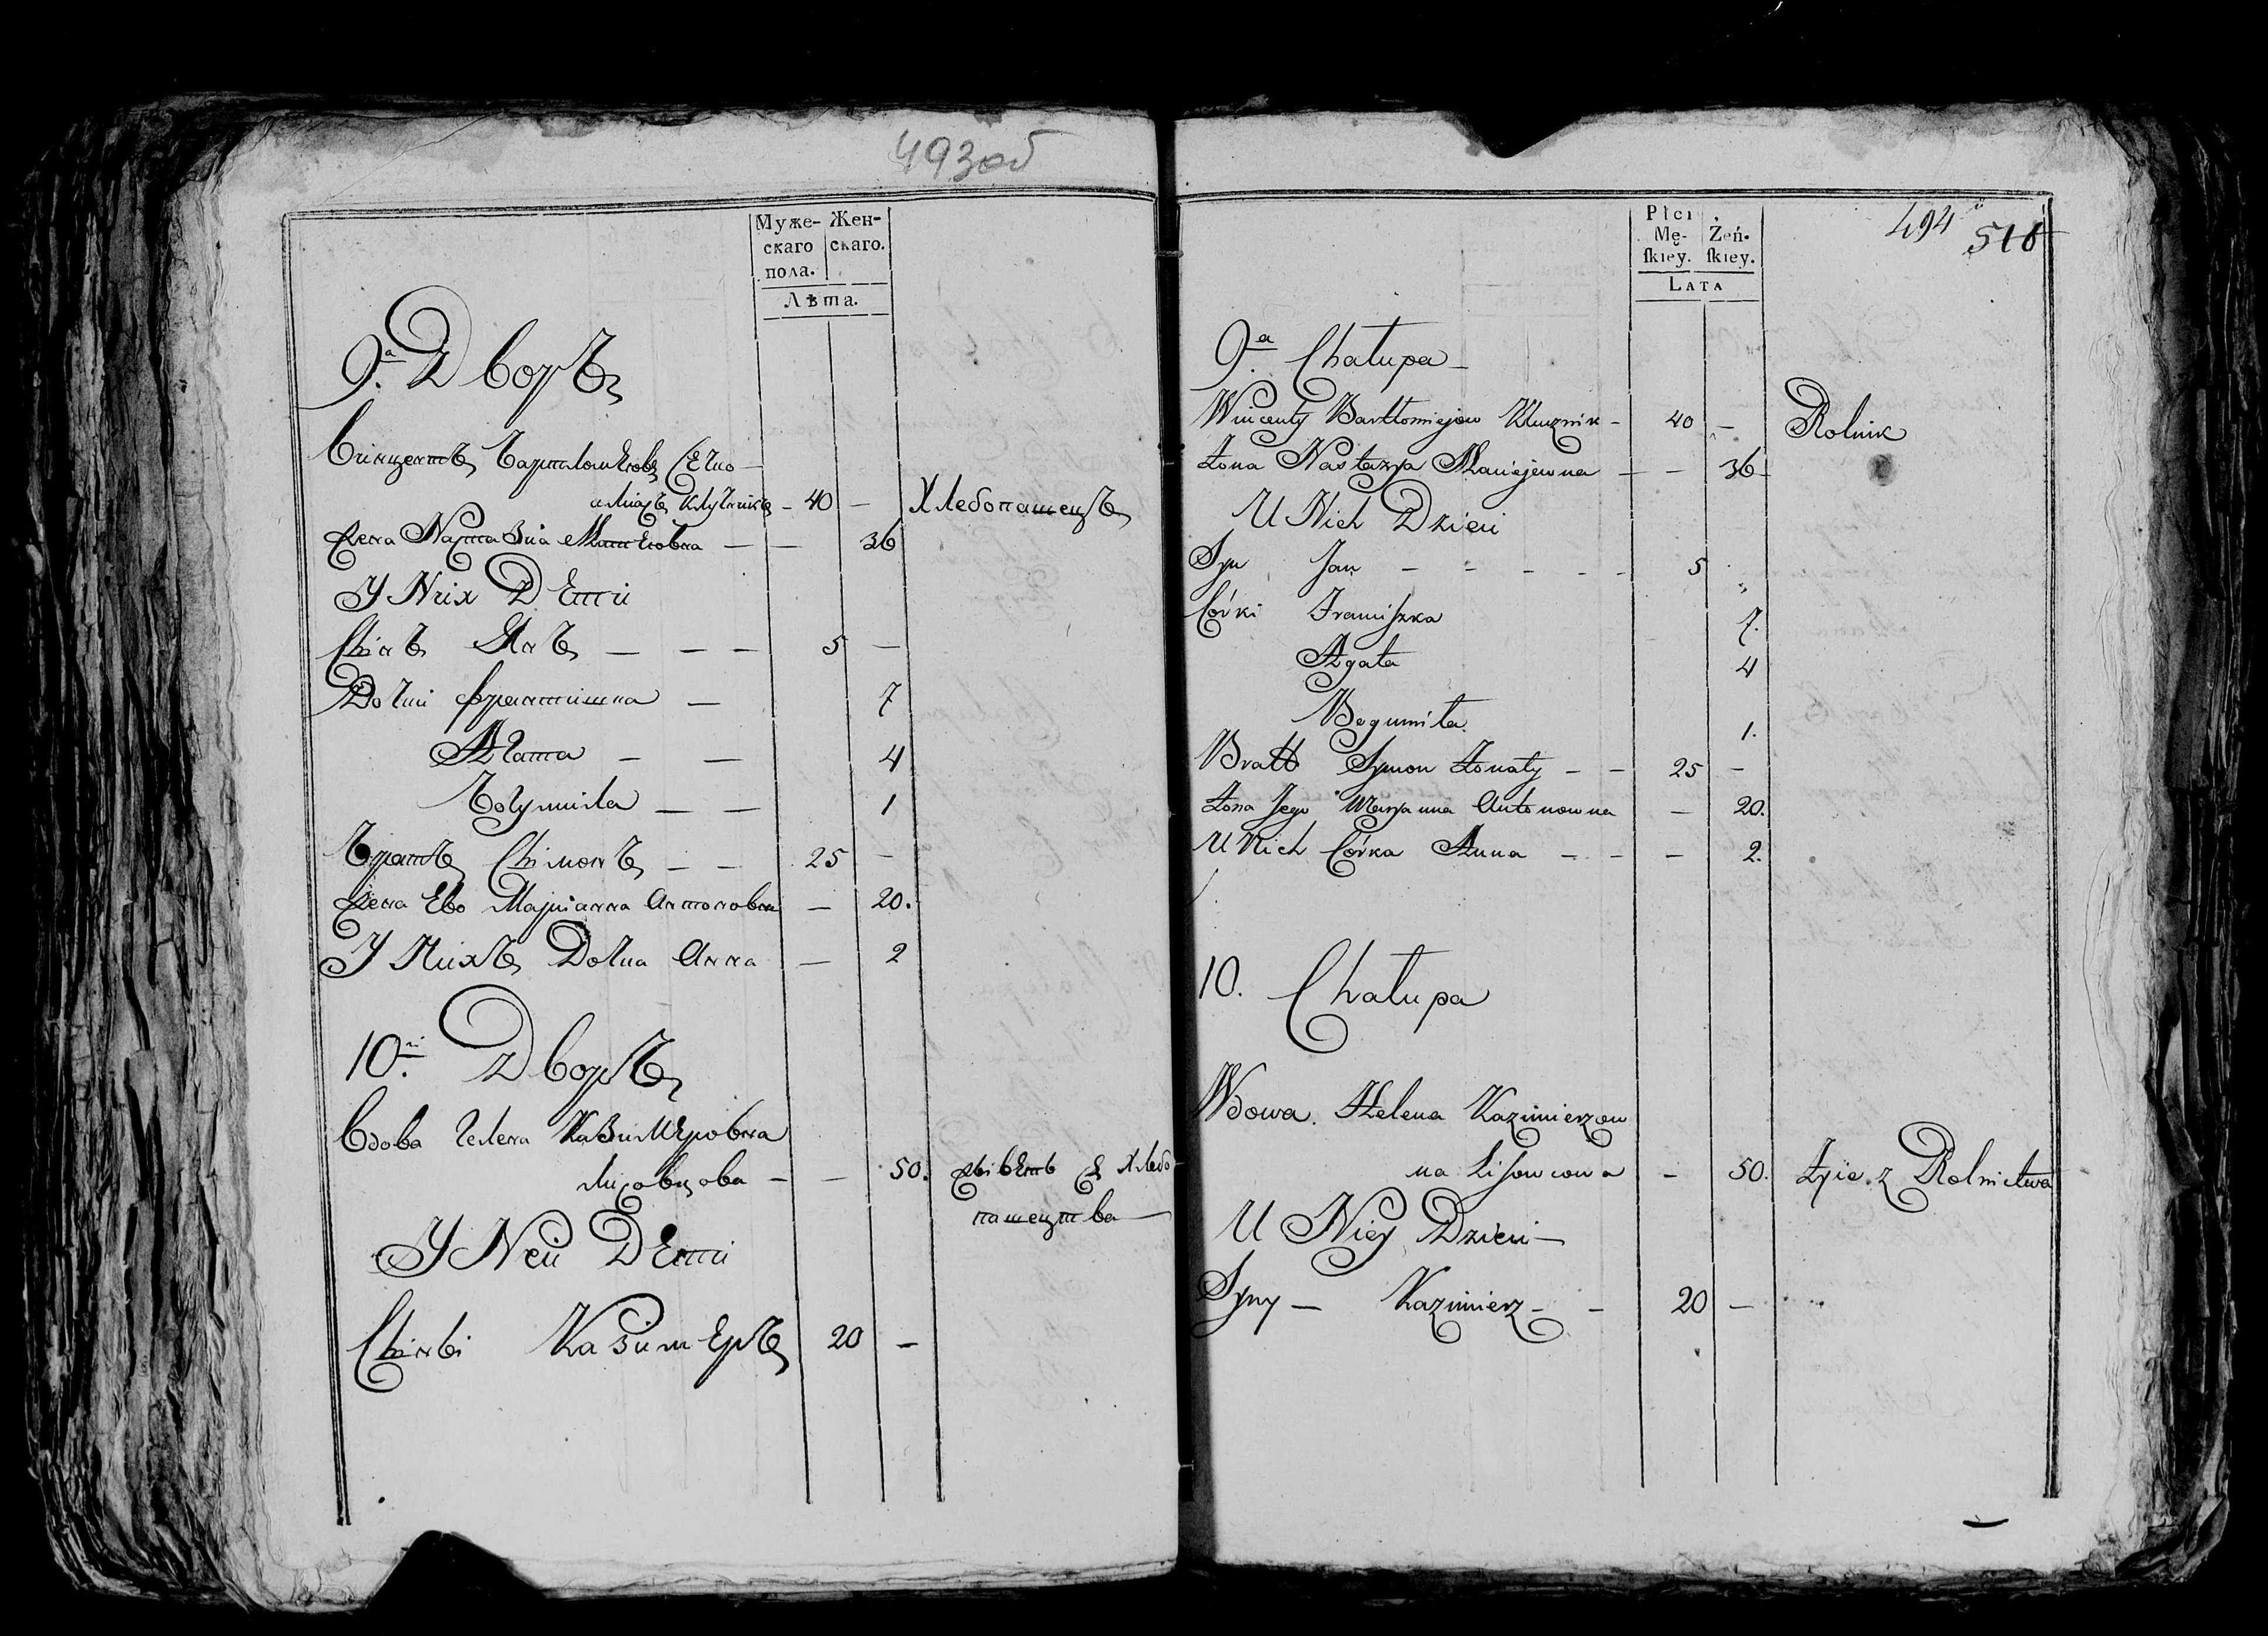 493об
Муже-
скаго
пола.
Жен-
скаго.
Лѣта.
9.а Дворъ
Винцентъ Бартломѣювъ
Ключникъ - 40 - Хлебопашецъ
Жена Настазіа Матѣювна - - 36
У Них Дѣти
Сынъ Янъ - - - 5 -
Дочки Францишка - 7
Агата - - 4
Богумила - - 1
Братъ Сымонъ - - 25 -
Жена Ево Маріанна Антоновна - 20.
У Нихъ Дочка Анна - 2
10. Дворъ
Вдова Гелена Казимѣровна
Лисовцова - - 50. Живѣтъ с Хлебо
пашецтва
У Неи Дѣти
Сыны Казимѣръ 20 -
Płci
Mę-
ſkiey.
Żeń-
ſkiey.
LATA
494
518
9.a Chałupa
Wincenty Bartłomiejow Kluznik - 40 - Rolnik
Żona Nastazya Maciejewna - - 36
U Nich Dzieci
Syn Jan - - - - - 5
Córki Franciszka 7.
Agata 4
Bogumiła 1.
Bratt Symon Żonaty - - 25 -
Żona Jego Maryanna Antonowna - 20.
U Nich Córka Anna - - - 2.
10. Chałupa
Wdowa Helena Kazimierzow
na Lisowcowa - 50. Żyie z Rolnictwa
U Niey Dzieci
Syny - Kazimierz - - 20 -